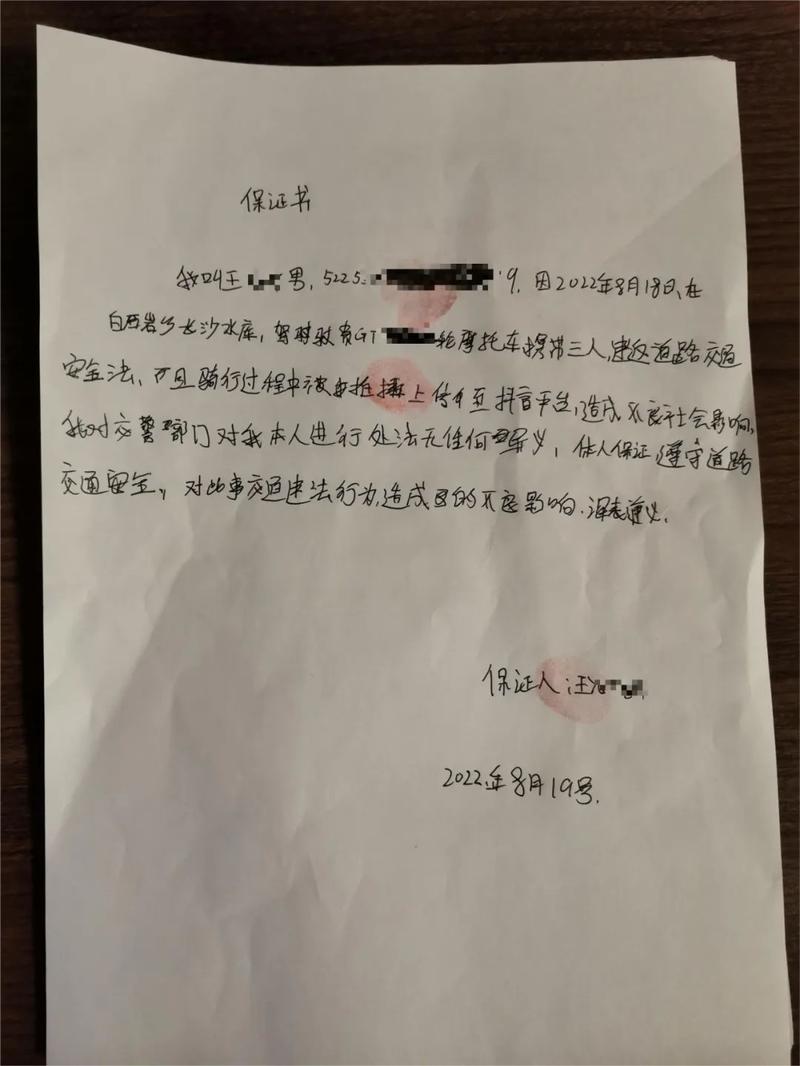 保证书
我叫王 男，5225 9，因2022年8月18日，在
白西岩乡长沙水库，驾驶贵GT 轮摩托车携带三人，违返道路交通
安全法，而且骑行过程中被 拍摄上传 至抖音平台，造成不良社会影响，
我对交警部门对我本人进行处法无任何异义，本人保证，遵守道路
交通安全，对此事交通违法行为，造成的不良影响，深表
保证人：汪
2022年8月19号，